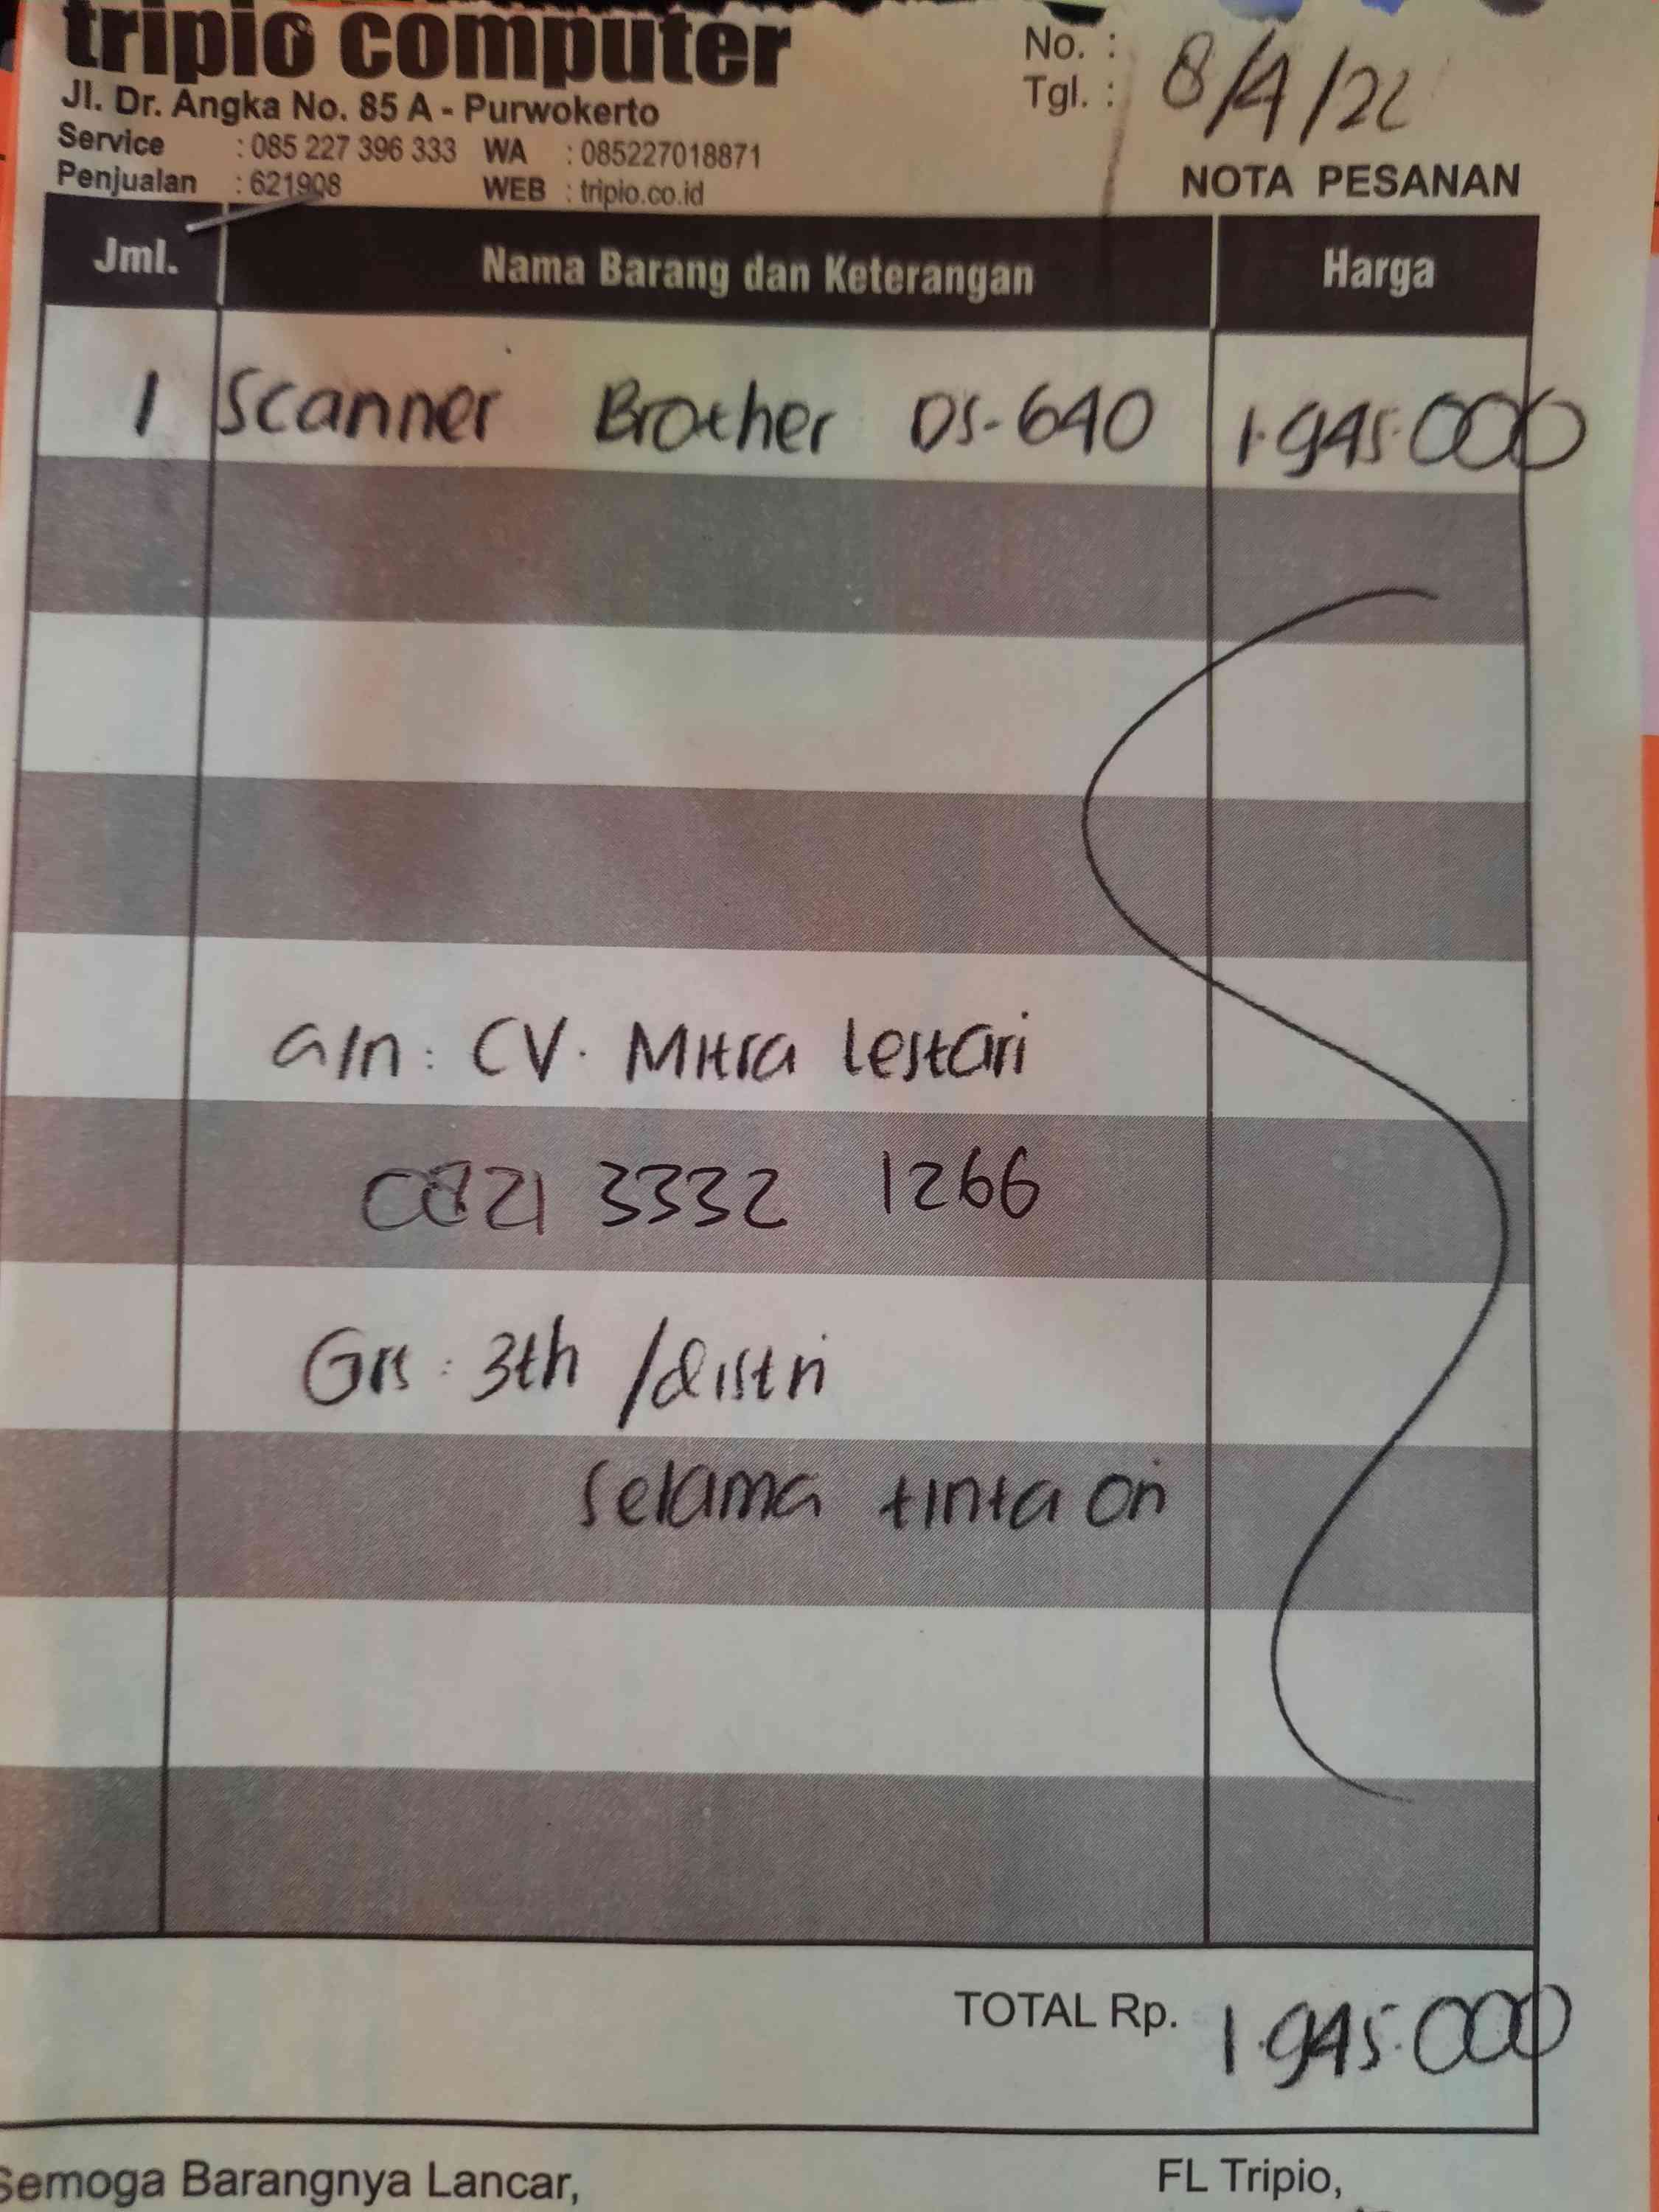 tripio computer
Jl. Dr. Angka No. 85 A - Purwokerto
Service : 085 227 396 333 WA : 085227018871
Penjualan : 621908 WEB : tripio.co.id
No. :
Tgl. : 8/4/22
NOTA PESANAN
Jml. Nama Barang dan Keterangan Harga
1 Scanner Brother DS-640 1.945.000
a/n : CV. Mitra Lestari
0821 3332 1266
Grs : 3th /distri
selama tinta ori
TOTAL Rp. 1.945.000
Semoga Barangnya Lancar,
FL Tripio,